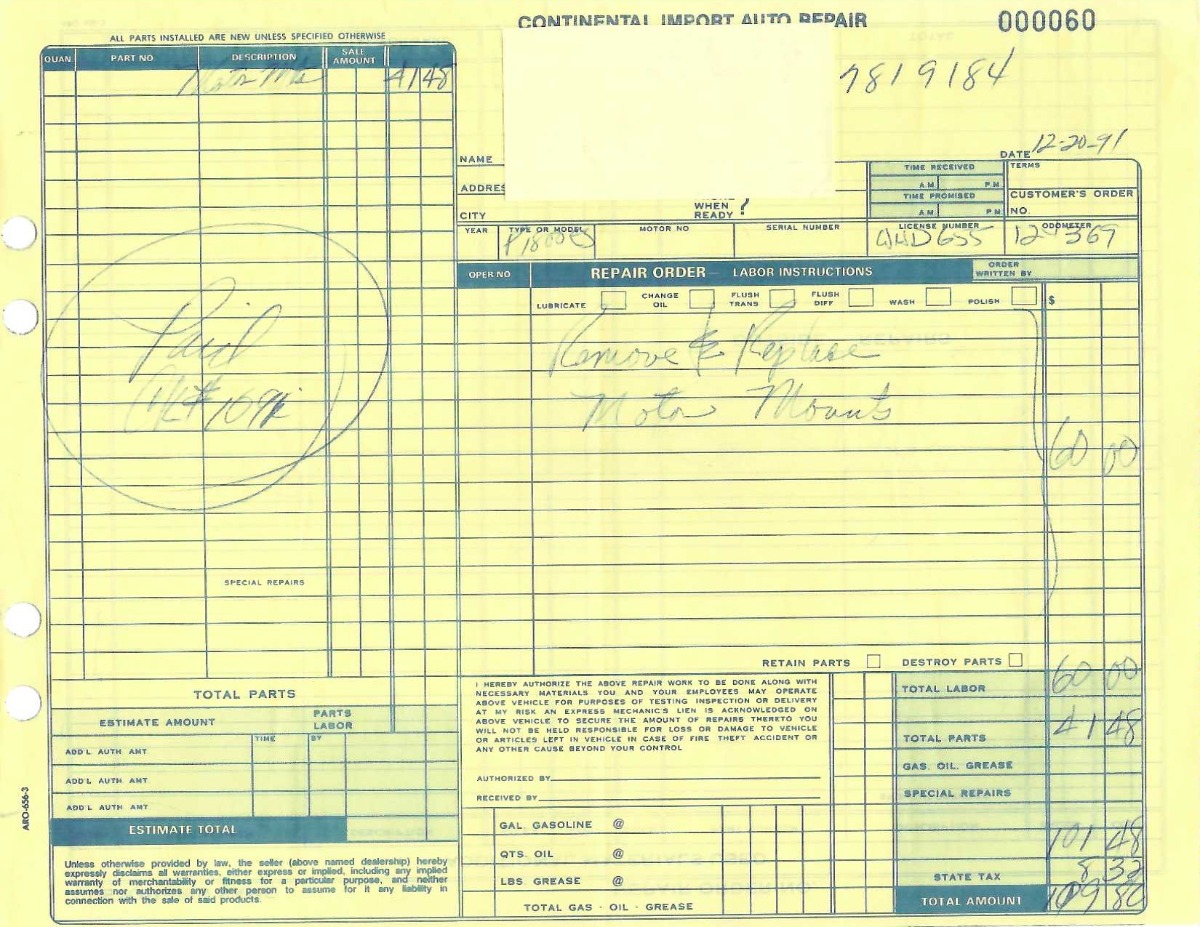 CONTINENTAL IMPORT AUTO REPAIR
000060
ALL PARTS INSTALLED ARE NEW UNLESS SPECIFIED OTHERWISE
QUAN. PART NO DESCRIPTION SALE AMOUNT
Motor Mts 41 48
7819184
DATE 12-20-91
NAME
ADDRES
CITY
WHEN READY ?
TIME RECEIVED
A.M. P.M.
TIME PROMISED
A.M. P.M.
TERMS
CUSTOMER'S ORDER NO.
YEAR TYPE OR MODEL MOTOR NO SERIAL NUMBER LICENSE NUMBER ODOMETER
P1800ES 655 367
OPER NO REPAIR ORDER — LABOR INSTRUCTIONS ORDER WRITTEN BY
LUBRICATE CHANGE OIL FLUSH TRANS FLUSH DIFF WASH POLISH $
Remove & Replace
Motor Mounts
60 00
Paid
SPECIAL REPAIRS
RETAIN PARTS DESTROY PARTS
TOTAL PARTS
ESTIMATE AMOUNT PARTS LABOR
TIME BY
ADD'L AUTH. AMT
ADD'L AUTH. AMT
ADD'L AUTH. AMT
ESTIMATE TOTAL
Unless otherwise provided by law, the seller (above named dealership) hereby
expressly disclaims all warranties, either express or implied, including any implied
warranty of merchantability or fitness for a particular purpose, and neither
assumes nor authorizes any other person to assume for it any liability in
connection with the sale of said products.
ARO-656-3
I HEREBY AUTHORIZE THE ABOVE REPAIR WORK TO BE DONE ALONG WITH
NECESSARY MATERIALS YOU AND YOUR EMPLOYEES MAY OPERATE
ABOVE VEHICLE FOR PURPOSES OF TESTING INSPECTION OR DELIVERY
AT MY RISK AN EXPRESS MECHANIC'S LIEN IS ACKNOWLEDGED ON
ABOVE VEHICLE TO SECURE THE AMOUNT OF REPAIRS THERETO YOU
WILL NOT BE HELD RESPONSIBLE FOR LOSS OR DAMAGE TO VEHICLE
OR ARTICLES LEFT IN VEHICLE IN CASE OF FIRE THEFT ACCIDENT OR
ANY OTHER CAUSE BEYOND YOUR CONTROL
AUTHORIZED BY
RECEIVED BY
GAL. GASOLINE @
QTS. OIL @
LBS. GREASE @
TOTAL GAS - OIL - GREASE
TOTAL LABOR 60 00
TOTAL PARTS 41 48
GAS. OIL. GREASE
SPECIAL REPAIRS
101 48
STATE TAX 8 32
TOTAL AMOUNT 109 80